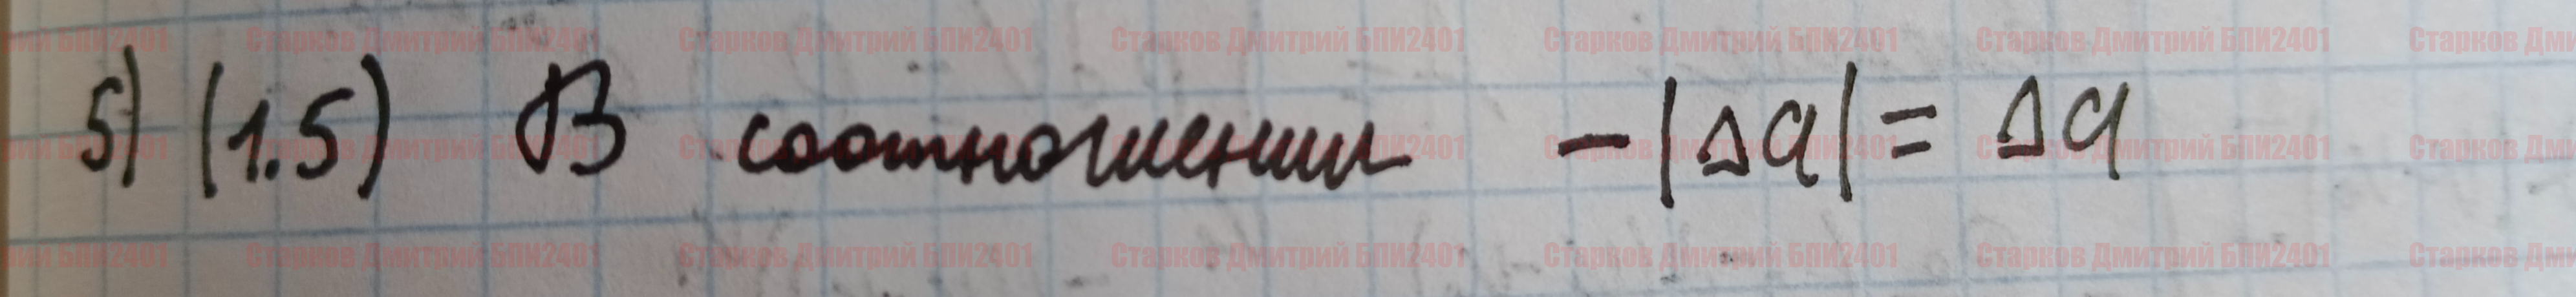 рий БПИ2401 Старков Дмитрий БПИ2401 Старков Дмитрий БПИ2401 Старков Дмитрий БПИ2401 Старков Дмитрий БПИ2401 Старков Дмитрий БПИ2401 Старков Дми
5) (1.5) В соотношении -|Δq| = Δq
рий БПИ2401 Старков Дмитрий БПИ2401 Старков Дмитрий БПИ2401 Старков Дмитрий БПИ2401 Старков Дмитрий БПИ2401 Старков Дмитрий БПИ2401 Старков Дми
рий БПИ2401 Старков Дмитрий БПИ2401 Старков Дмитрий БПИ2401 Старков Дмитрий БПИ2401 Старков Дмитрий БПИ2401 Старков Дмитрий БПИ2401 Старков Дми